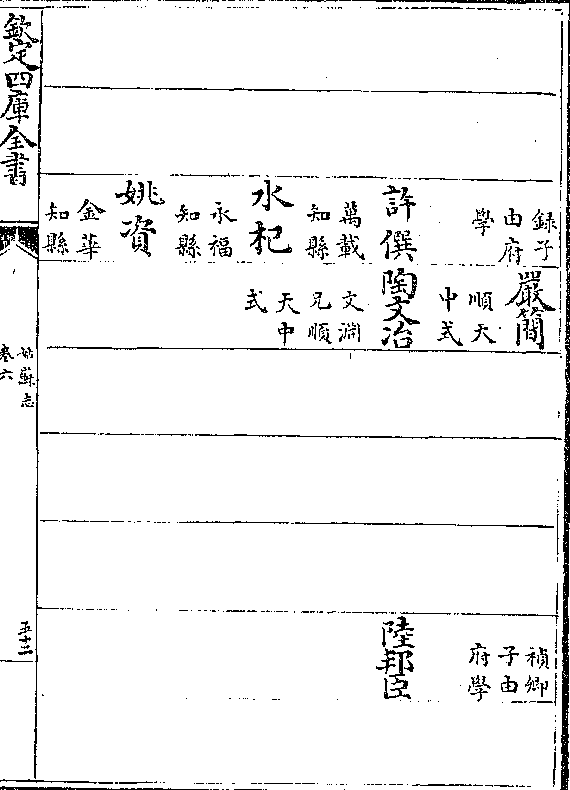 録子
由府
學
許僎
萬載
知縣
水杞
永福
知縣
姚資
金華
知縣
嚴簡
順天
中式
陶文冶
文淵
兄順
天中
式
禎卿
子由
府學
陸邦臣
欽定四庫全書
姑蘇志
卷六
五十二